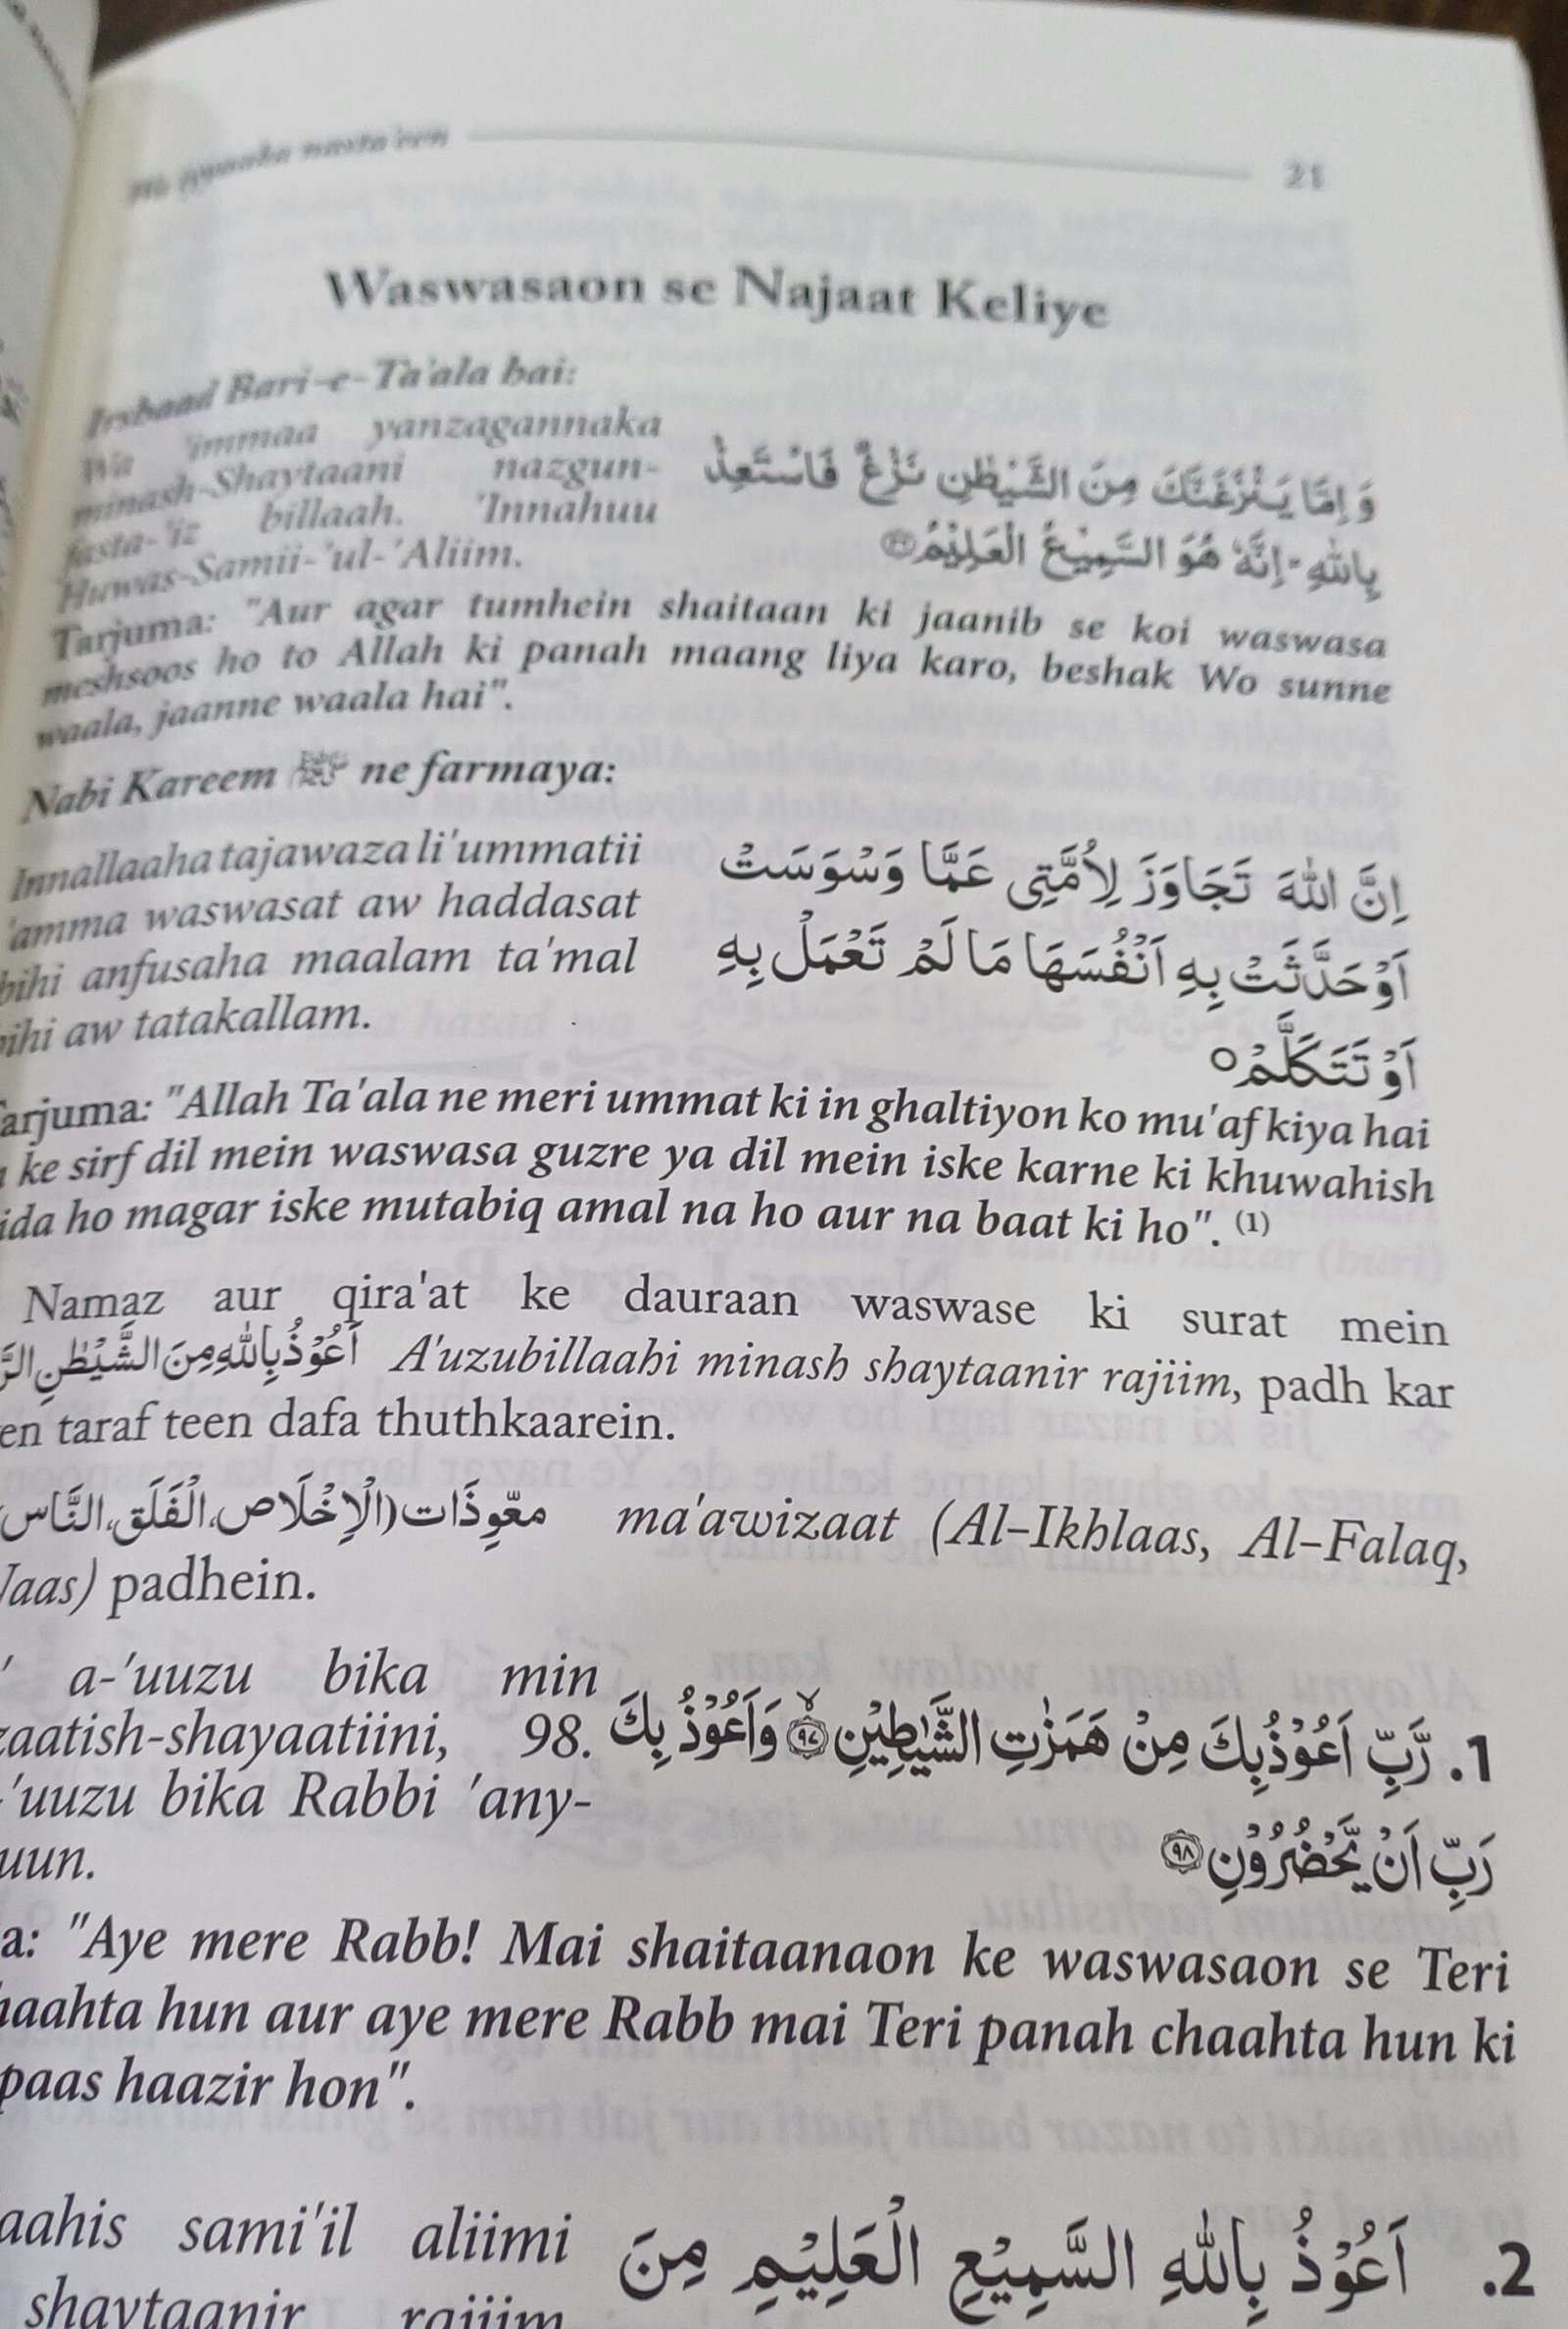 Wa iyyaaka nasta'een 21
Waswasaon se Najaat Keliye
Irshaad Bari-e-Ta'ala hai:
Wa 'immaa yanzagannaka
minash-Shaytaani nazgun-
fasta-'iz billaah. 'Innahuu
Huwas-Samii-'ul-'Aliim.
وَ اِمَّا يَنْزَغَنَّكَ مِنَ الشَّيْطٰنِ نَزْغٌ فَاسْتَعِذْ
بِاللّٰهِ ؕ اِنَّهٗ هُوَ السَّمِيْعُ الْعَلِيْمُ
Tarjuma: "Aur agar tumhein shaitaan ki jaanib se koi waswasa
mehsoos ho to Allah ki panah maang liya karo, beshak Wo sunne
waala, jaanne waala hai".
Nabi Kareem ﷺ ne farmaya:
Innallaaha tajawaza li'ummatii
'amma waswasat aw haddasat
bihi anfusaha maalam ta'mal
bihi aw tatakallam.
اِنَّ اللّٰهَ تَجَاوَزَ لِاُمَّتِى عَمَّا وَسْوَسَتْ
اَوْ حَدَّثَتْ بِهِ اَنْفُسَهَا مَا لَمْ تَعْمَلْ بِهِ
اَوْ تَتَكَلَّمْ○
Tarjuma: "Allah Ta'ala ne meri ummat ki in ghaltiyon ko mu'af kiya hai
ke sirf dil mein waswasa guzre ya dil mein iske karne ki khuwahish
ida ho magar iske mutabiq amal na ho aur na baat ki ho". (1)
Namaz aur qira'at ke dauraan waswase ki surat mein
اَعُوْذُ بِاللّٰهِ مِنَ الشَّيْطٰنِ A'uzubillaahi minash shaytaanir rajiim, padh kar
en taraf teen dafa thuthkaarein.
معّوِذَات (الْاِخْلَاص، الْفَلَق، النَّاس ma'awizaat (Al-Ikhlaas, Al-Falaq,
Naas) padhein.
' a-'uuzu bika min
zaatish-shayaatiini, 98.
-'uuzu bika Rabbi 'any-
uun.
1. رَّبِّ اَعُوْذُ بِكَ مِنْ هَمَزٰتِ الشَّيٰطِيْنِ ۙ‏﴿۹۷﴾ وَاَعُوْذُ بِكَ
رَبِّ اَنْ يَّحْضُرُوْنِ ﴿۹۸﴾
a: "Aye mere Rabb! Mai shaitaanaon ke waswasaon se Teri
haahta hun aur aye mere Rabb mai Teri panah chaahta hun ki
paas haazir hon".
aahis sami'il aliimi
shaytaanir rajiim
2. اَعُوْذُ بِاللّٰهِ السَّمِيْعِ الْعَلِيْمِ مِنَ